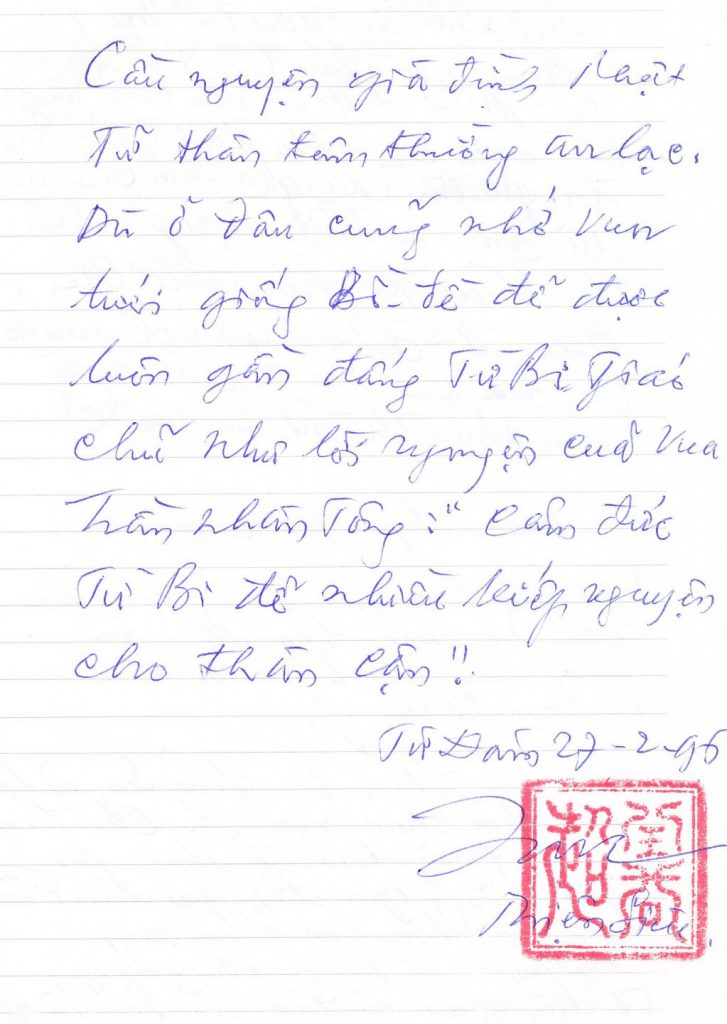 Cầu nguyện gia đình Nhật
Từ thân tâm thường an lạc.
Dù ở đâu cũng nhớ vun
tưới giống Bồ-đề để được
luôn gần đấng Từ Bi Giáo
chủ như lời nguyện của Vua
Trần Nhân Tông : " Cảm đức
Từ Bi để nhiều kiếp nguyện
cho thân cận !!
Từ Đàm 27-2-96
Thiện Siêu